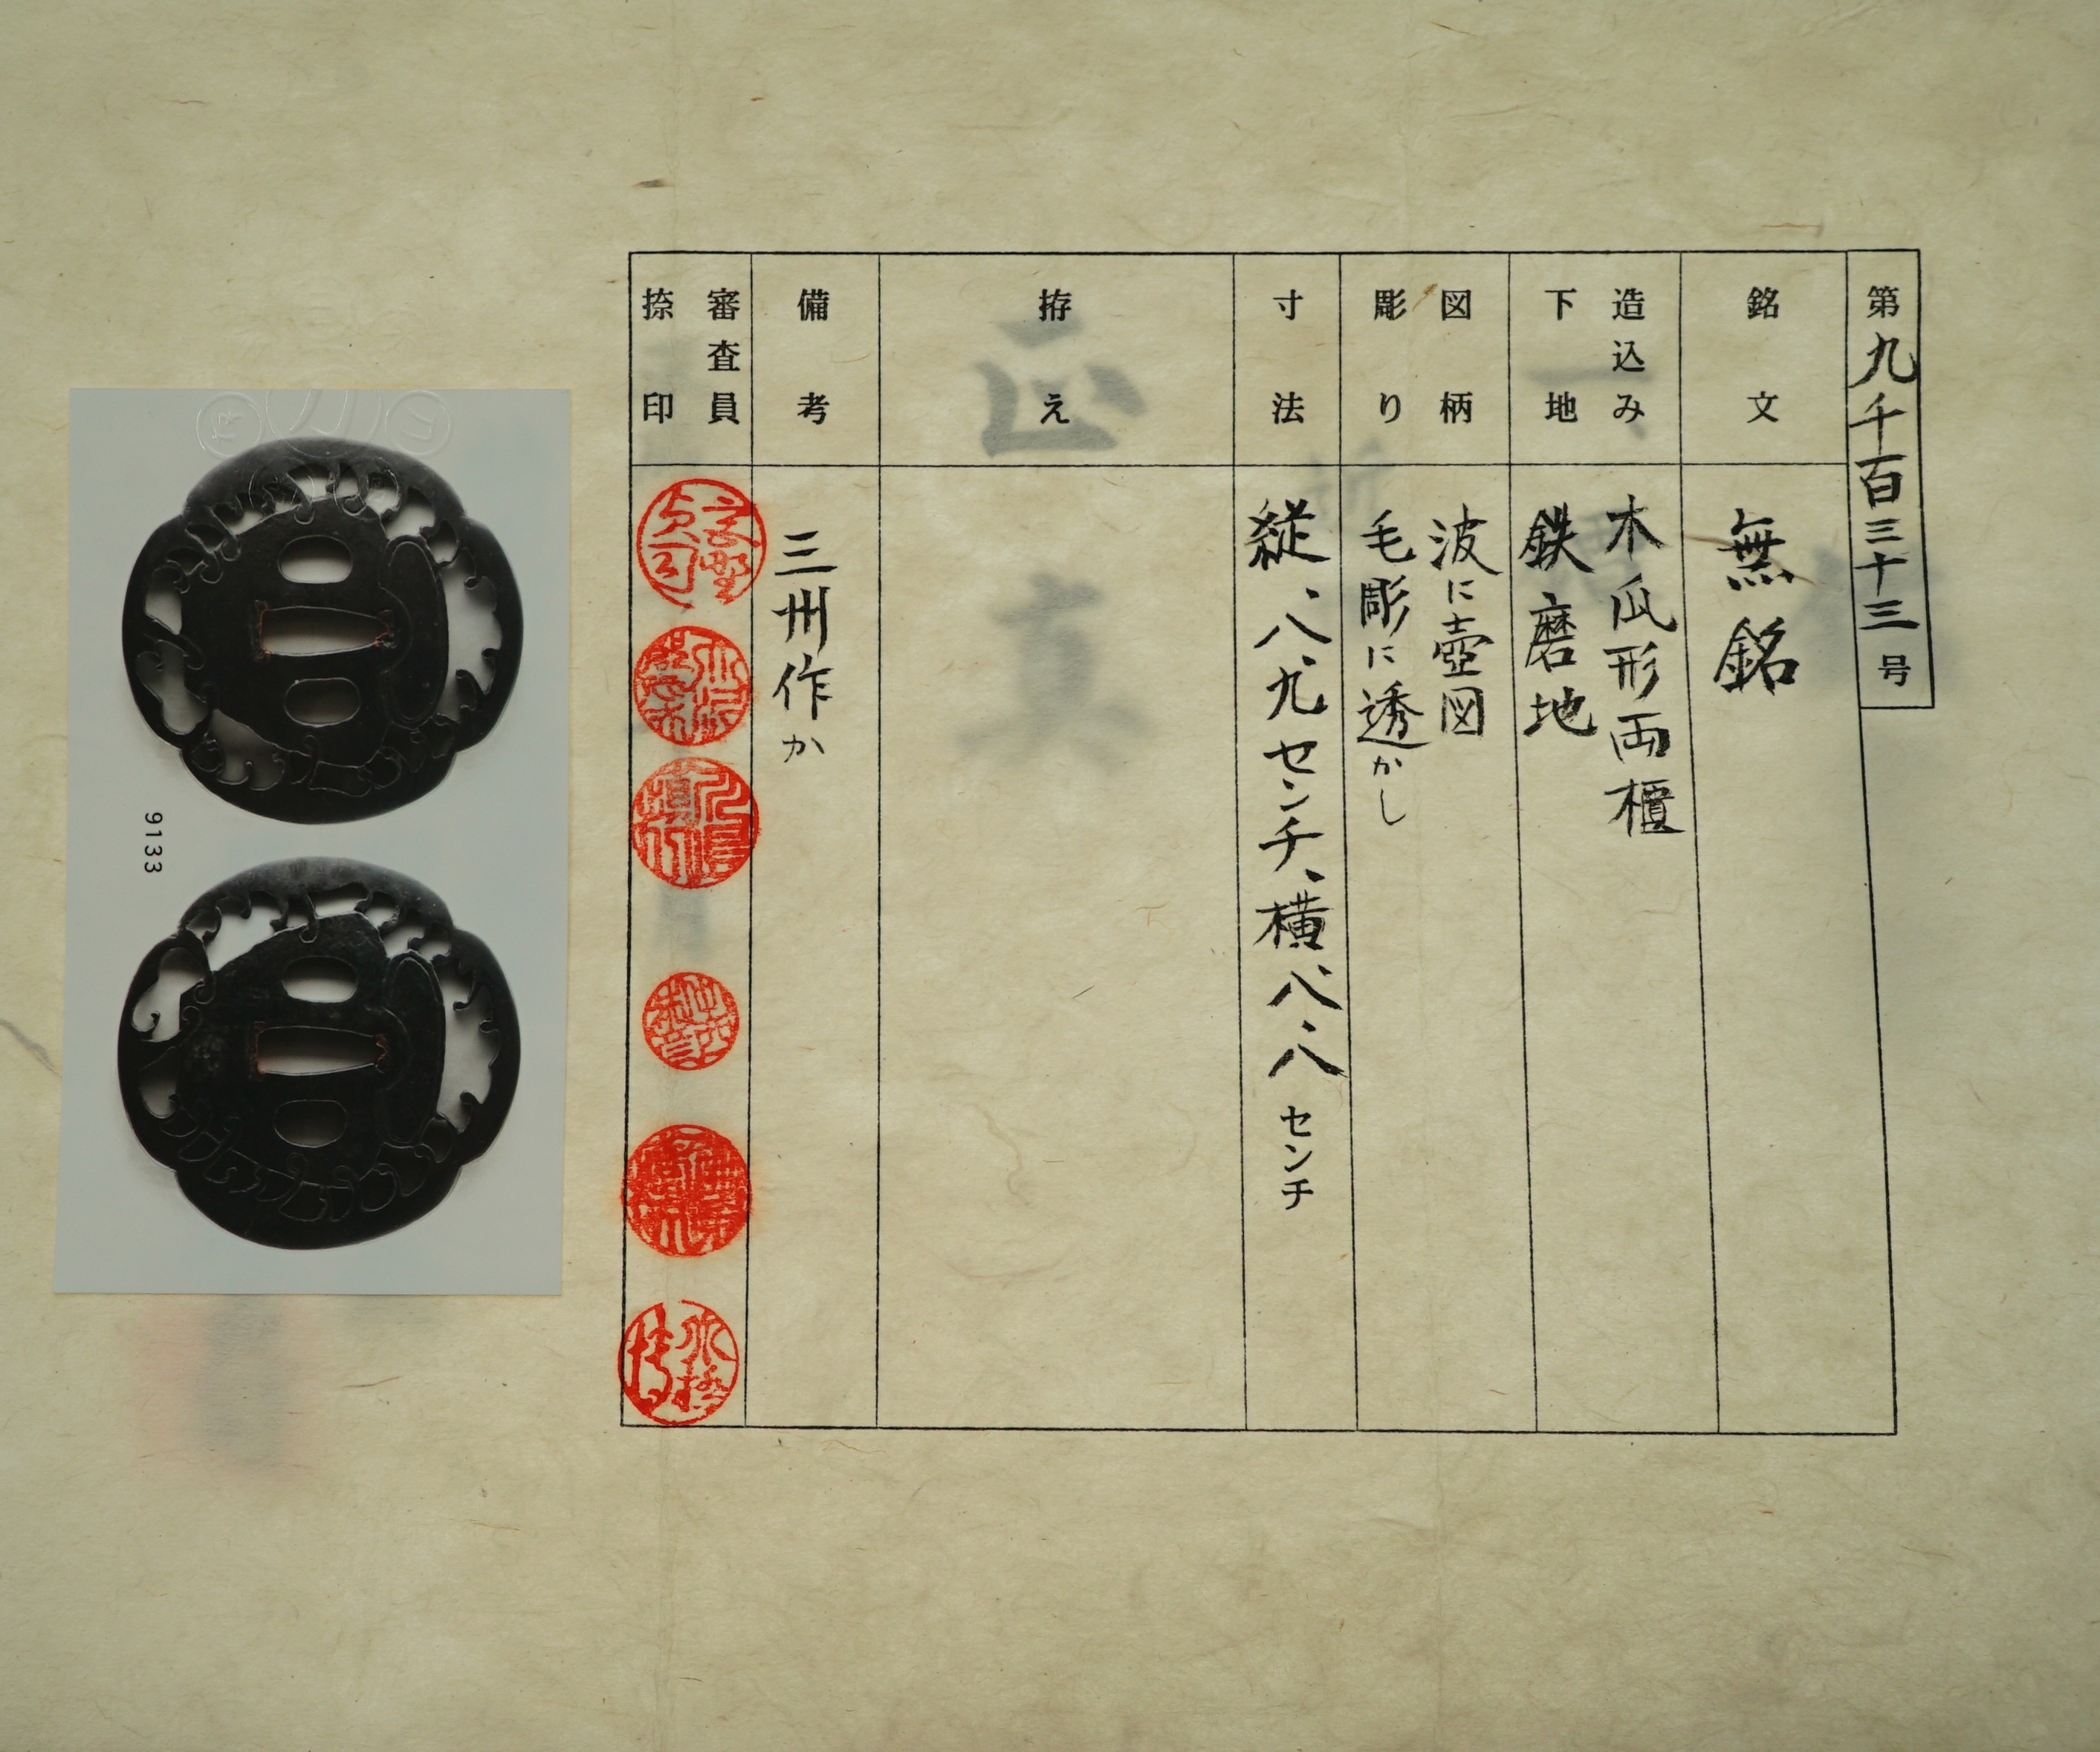 第九千百三十三号
銘文
無銘
造込み
下地
木瓜形両櫃
鉄磨地
図柄
彫り
波に壺図
毛彫に透かし
寸法
縦、八.九センチ、横、八.八センチ
拵え
備考
三州作か
審査員
捺印
9133
正真